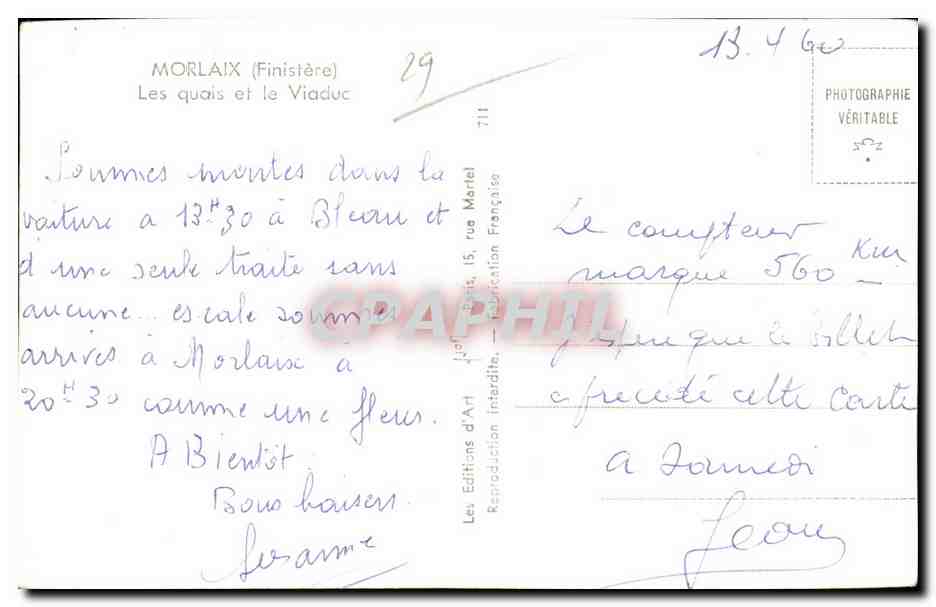 MORLAIX (Finistère)
Les quais et le Viaduc
29
13.4 60
PHOTOGRAPHIE
VÉRITABLE
Sommes montes dans la
voiture a 13H30 à Bleau et
d'une seule traite sans
aucune... escale sommes
arrivés à Morlaix à
20H30 comme une fleur.
A Bientôt.
Bons baisers.
Susanne
Les Editions d'Art Paris, 15, rue Martel 711
Reproduction Interdite. — Fabrication Française
CPAPHIL
Le compteur
marque 560 Km
J'espère que le billet
a précédé cette carte
a samedi
Jean